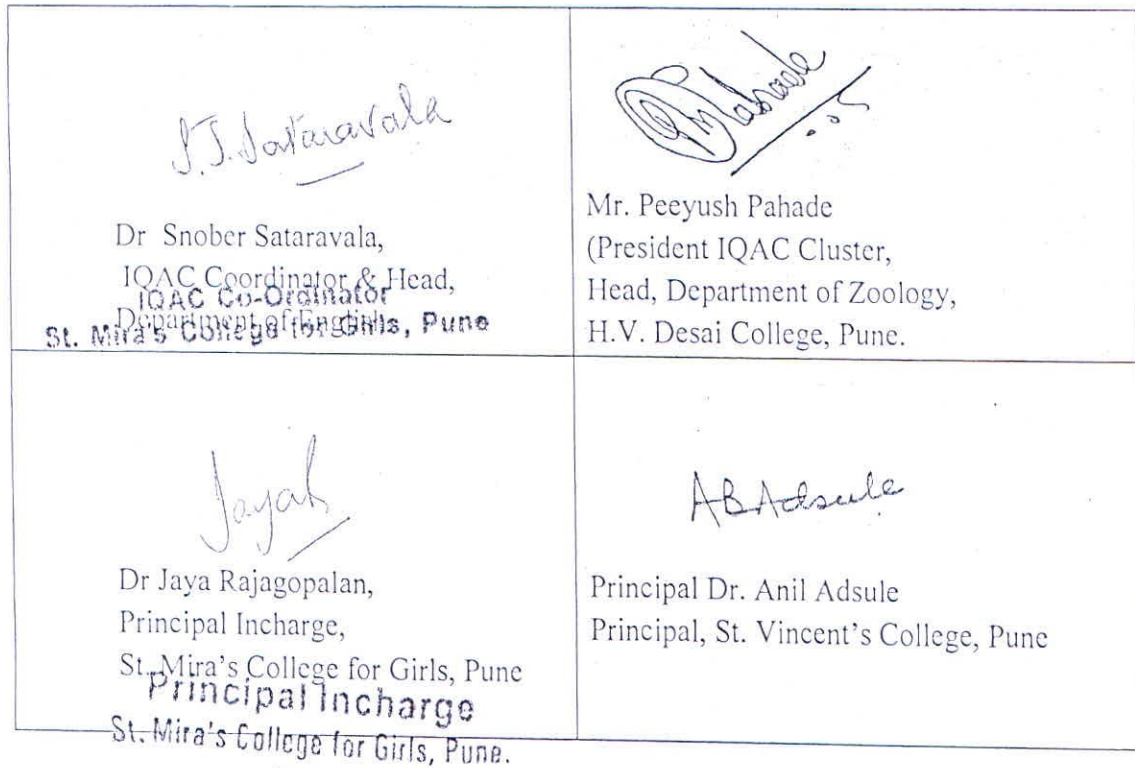 S.J. Sataravala
Dr Snober Sataravala,
IQAC Coordinator & Head,
IQAC Co-Ordinator
Department of English
St. Mira's College for Girls, Pune
Pahade
Mr. Peeyush Pahade
(President IQAC Cluster,
Head, Department of Zoology,
H.V. Desai College, Pune.
JayaR
Dr Jaya Rajagopalan,
Principal Incharge,
St. Mira's College for Girls, Pune
Principal Incharge
St. Mira's College for Girls, Pune.
ABAdsule
Principal Dr. Anil Adsule
Principal, St. Vincent's College, Pune